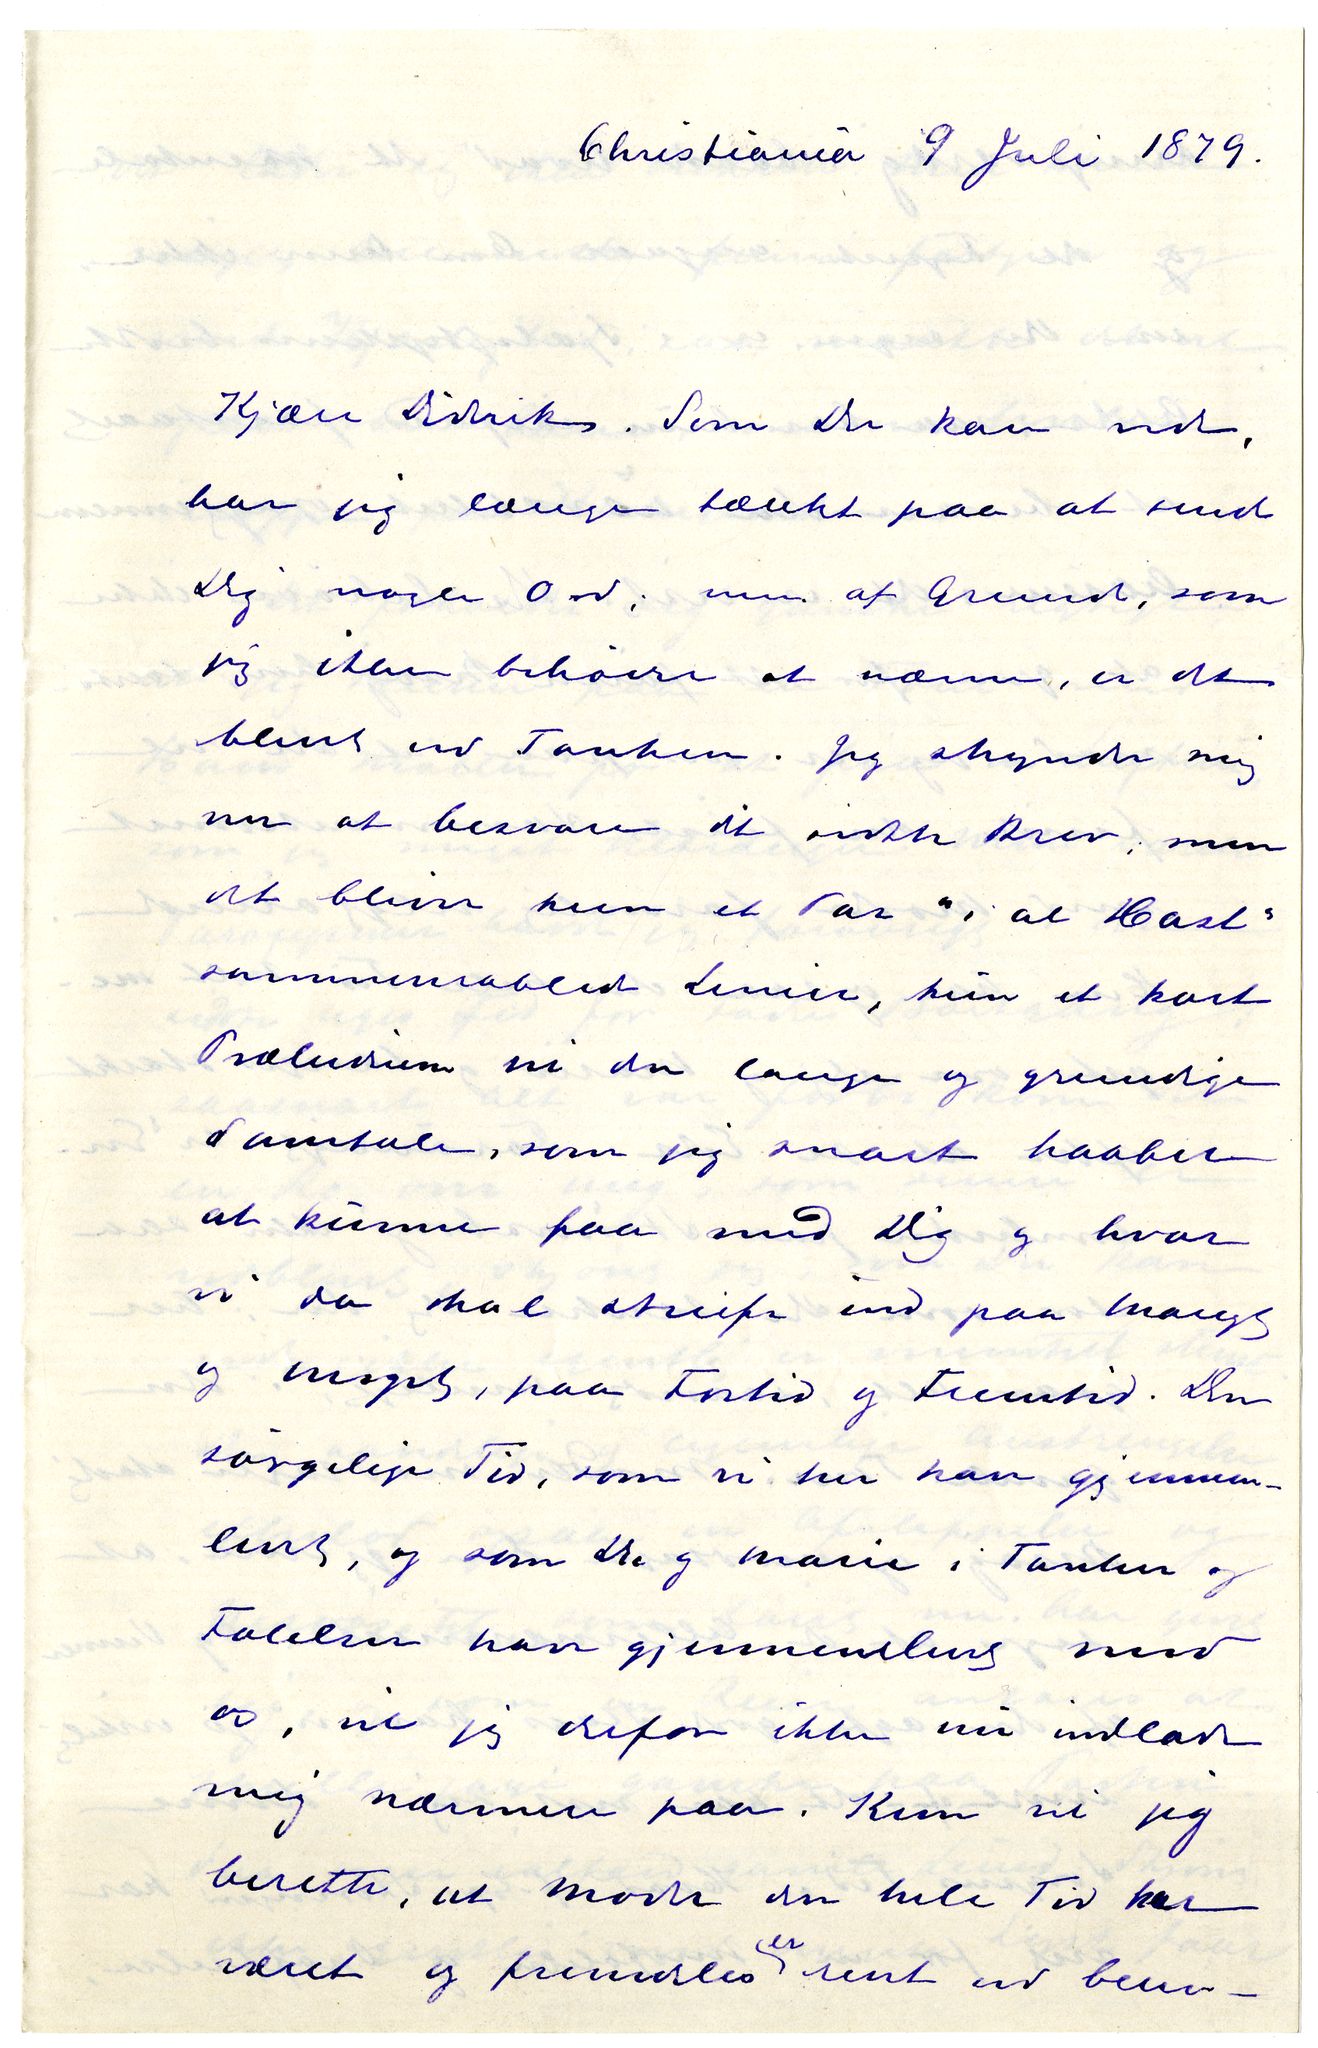 Christiania 9 Juli 1879.
Kjære Didrik. Som Du kan vide,
har jeg længe tænkt paa at sende
Dig nogle Ord; men af Grunde, som
jeg ikke behøver at nævne, er det
blevet ved Tanken. Jeg skynder mig
nu at besvare dit sidste Brev; men
det bliver kun et Par "i al Hast"
sammenrablede Linier, kun et kort
Præludium til den lange og grundige
Samtale, som jeg snart haaber
at kunne faa med Dig og hvor
vi da skal streife ind paa meget
og meget, paa Fortid og Fremtid. Den
sørgelige Tid, som vi her har gjennem-
levet, og som Du og Marie i Tanker og
Følelser har gjennemlevet med
os, vil jeg derfor ikke nu indlade
mig nærmere paa. Kun vil jeg
berette, at Moder den hele Tid har
været og fremdeles er rent ud beun-